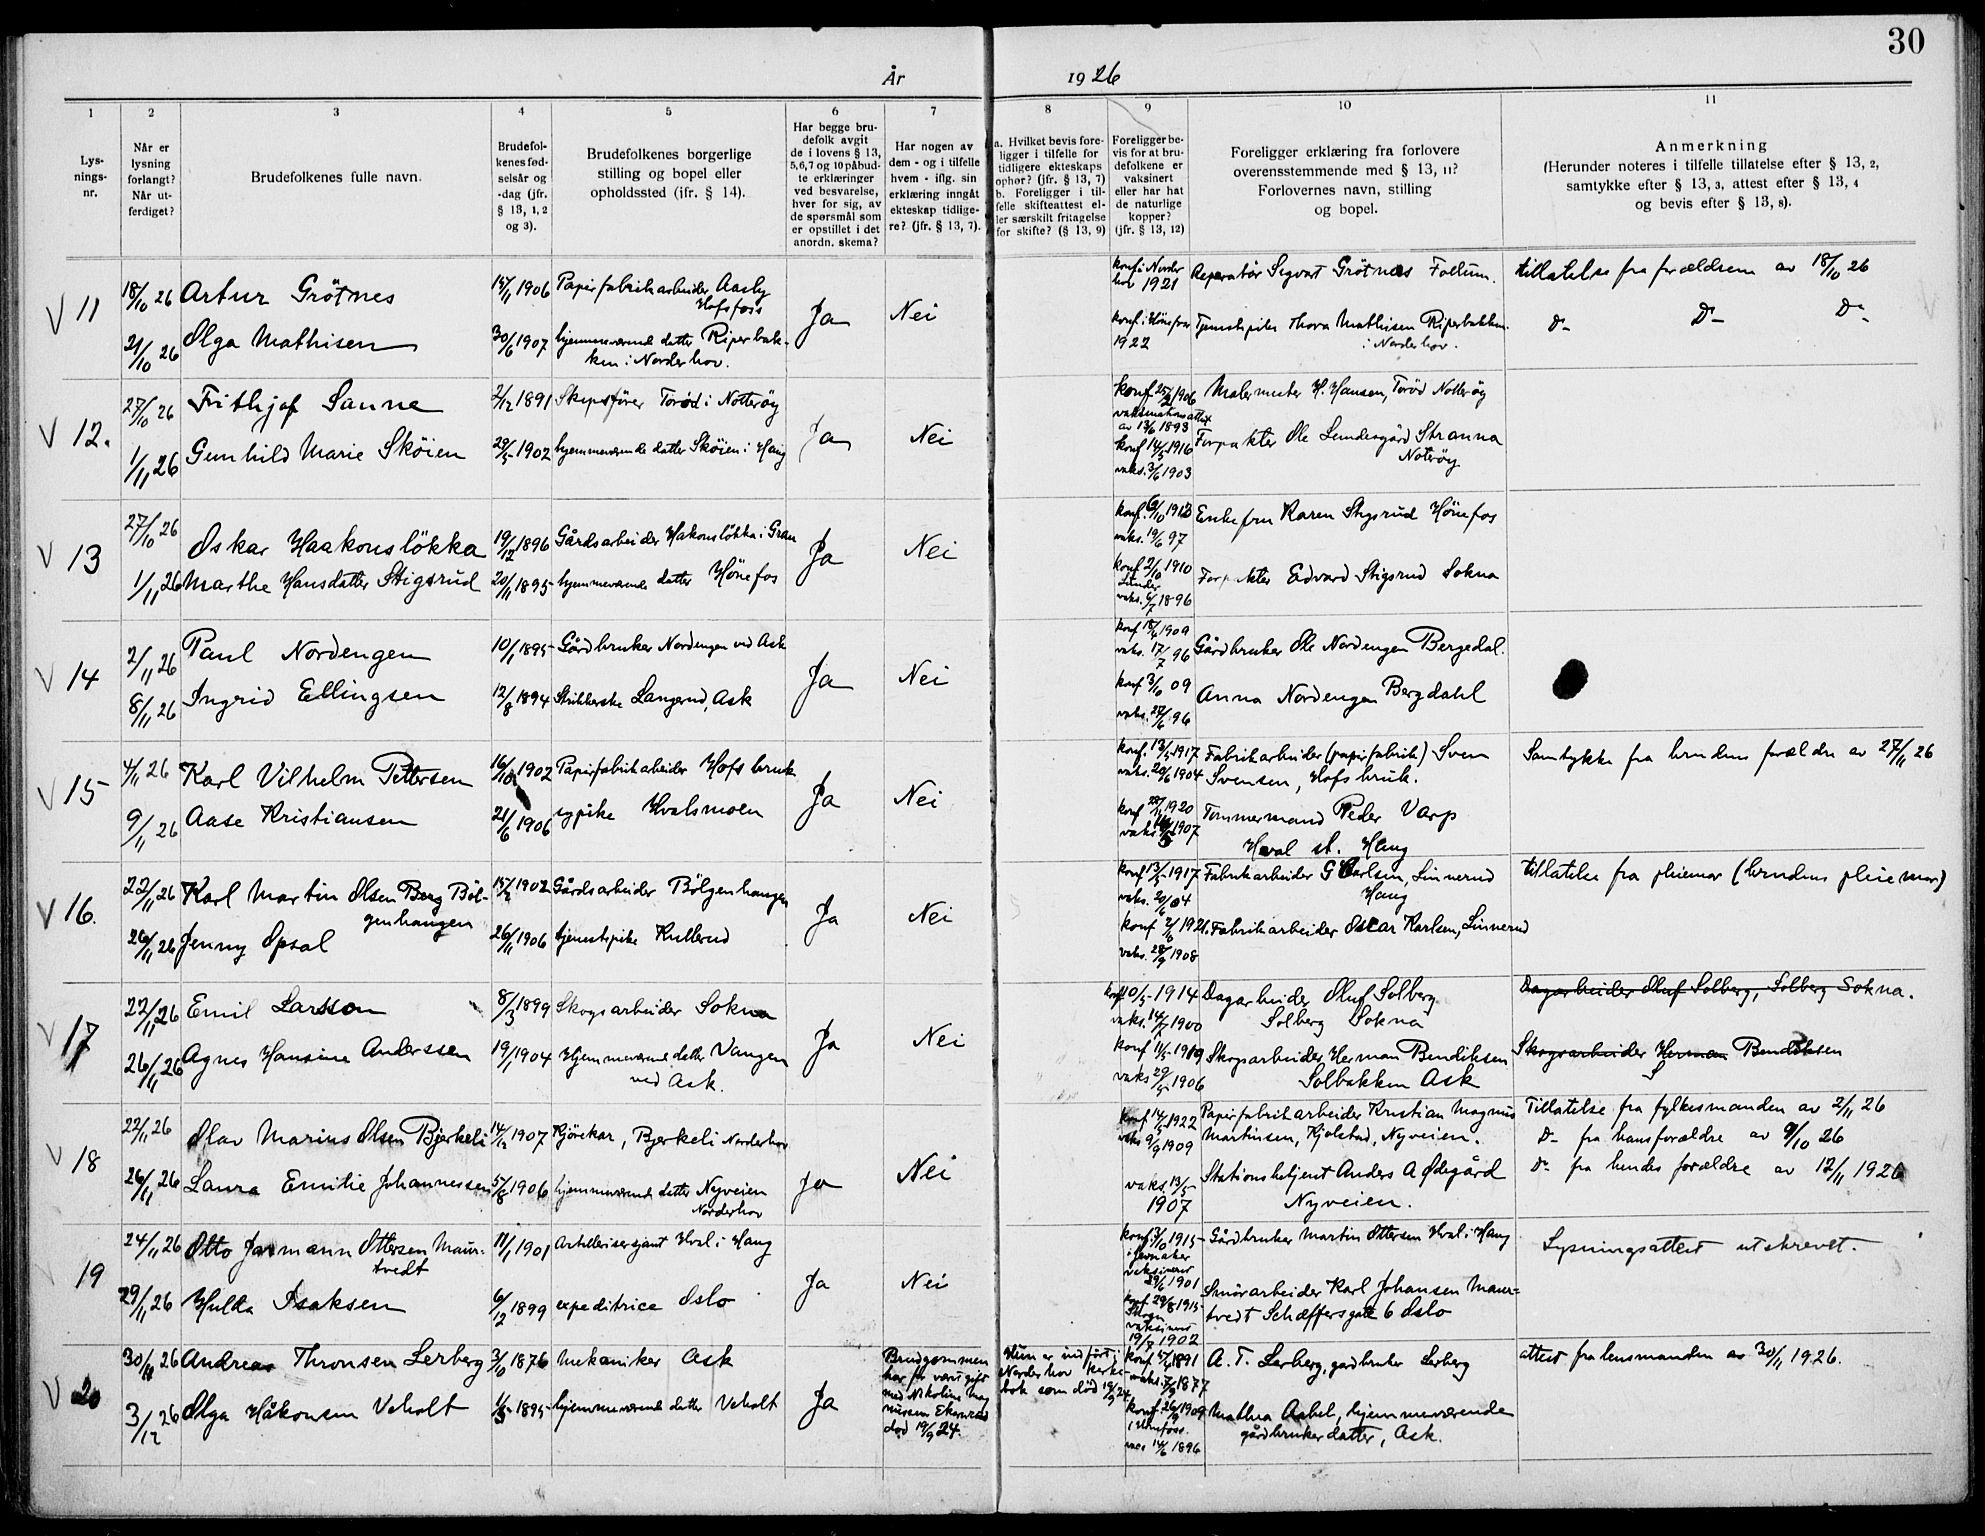 30
År 1926
1 2 3 4 5 6 7 8 9 10 11
Lysningsnr.
Når er lysning forlangt? Når utferdiget?
Brudefolkenes fulle navn.
Brudefolkenes fødselsår og -dag (jfr. § 13, 1, 2 og 3).
Brudefolkenes borgerlige stilling og bopel eller opholdssted (ifr. § 14).
Har begge brudefolk avgit de i lovens § 13, 5,6,7 og 10 påbudte erklæringer ved besvarelse, hver for sig, av de spørsmål som er opstillet i det anordn. skema?
Har nogen av dem - og i tilfelle hvem - iflg. sin erklæring inngåt ekteskap tidligere? (jfr. § 13, 7).
a. Hvilket bevis foreligger i tilfelle for tidligere ekteskaps ophør? (jfr. § 13, 7) b. Foreligger i tilfelle skifteattest eller særskilt fritagelse for skifte? (§ 13, 9)
Foreligger bevis for at brudefolkene er vaksinert eller har hat de naturlige kopper? (jfr. § 13, 12)
Foreligger erklæring fra forlovere overensstemmende med § 13, 11? Forlovernes navn, stilling og bopel.
Anmerkning (Herunder noteres i tilfelle tillatelse efter § 13, 2, samtykke efter § 13, 3, attest efter § 13, 4 og bevis efter § 13, 8).
V 11 18/10 26 Artur Grötnes 15/11 1906 Papirfabrikarbeider Aasby Hofsfoss Ja Nei konf i Norderhov 1921 Reparatör Sigvart Grötnes Follum. tillatelse fra forældrene av 18/10 26
21/10 26 Olga Mathisen 30/6 1907 hjemmeværende datter Riperbakken i Norderhov. konf. i Hönefos 1922 Tjenestepike Thora Mathisen Riperbakken i Norderhov. D- D- D-
V 12. 27/10 26 Frithjof Sanne 2/12 1891 Skipsförer Torød i Notteröy Ja Nei konf 25/3 1906 vaksinationsattest av 13/6 1893 Malermester H. Hansen, Torød Notteröy
1/11 26 Gunhild Marie Sköien 28/5 1902 hjemmeværende datter Sköien i Haug konf 14/5 1916 vaks. 3/6 1903 Forpakter Ole Lundesgård Stranna Noteröy
V 13 27/10 26 Oskar Haakonslökka 19/12 1896 Gårdsarbeider Hakonslökka i Gran Ja Nei konf. 6/10 1912 vaks. 19/6 97 Enkefru Karen Stigsrud Hönefos
1/11 26 Marthe Hansdatter Stigsrud 20/11 1895 hjemmeværende datter Hönefos konf 2/10 1910 Lunder vaks. 6/7 1896 Forpakter Edvard Stigsrud Sokna
V 14 2/11 26 Paul Nordengen 10/1 1895 Gårdbruker Nordengen ved Ask Ja Nei konf 18/6 1909 vaks. 17/7 96 Gårdbruker Ole Nordengen Bergedal.
8/11 26 Ingrid Ellingsen 12/8 1894 Strikkerske Langerud, Ask konf 3/10 09 vaks. 27/6 96 Anna Nordengen Bergdahl
V 15 4/11 26 Karl Vilhelm Pettersen 16/10 1902 Papirfabrikarbeider Hofs bruk Ja Nei konf. 13/5 1917 vaks. 20/6 1904 Fabrikarbeider (papirfabrik) Sven Svensen, Hofs bruk. Samtykke fra brudens forældre av 27/11 26
9/11 26 Aase Kristiansen 21/6 1906 sypike Hvalsmoen konf 28/11 1920 vaks 1907 Tømmermand Peder Varp Hval st. Haug
V 16. 22/11 26 Karl Martin Olsen Berg Bölgenhaugen 15/2 1902 Gårdsarbeider Bölgenhaugen Ja Nei konf 13/5 1917 vaks. 20/6 04 Fabrikarbeider G Carlsen, Linnerud Haug tillatelse fra pleiemor (brudens pleiemor)
26/11 26 Jenny Opsal 26/11 1906 tjenestepike Kullerud konf 2/10 1921. vaks. 28/9 1908 Fabrikarbeider Oscar Karlsen, Linnerud
V 17 22/11 26 Emil Larsson 8/3 1899 Skogsarbeider Sokna Ja Nei konf 10/5 1914 vaks. 14/7 1900 Dagarbeider Oluf Solberg Solberg Sokna Dagarbeider Oluf Solberg, Solberg Sokna.
26/11 26 Agnes Hansine Anderssen 19/1 1904 Hjemmeværende datter Vangen ved Ask. konf 11/5 1919 vaks 29/5 1906 Skogsarbeider Herman Bendiksen Solbakken Ask Skogsarbeider Herman Bendiksen S
V 18 22/11 26 Olav Marius Olsen Bjerkeli 14/12 1907 Kjörekar, Bjerkeli Norderhov Ja Nei konf 14/5 1922 vaks 9/9 1909 Papirfabrikarbeider Kristian Magnus Martinsen, Kjølstad, Nyveien. Tillatelse fra fylkesmanden av 2/11 26
D- fra hans forældre av 9/10 26
26/11 26 Laura Emilie Johannessen 5/8 1906 hjemmeværende datter Nyveien Norderhov vaks 13/5 1907 Stationsbetjent Anders A Ødegård Nyveien. D- fra hendes forældre av 12/11 1926
19 24/11 26 Otto Jarmann Ottersen Maurtvedt 11/1 1901 Artillerisersjant Hval i Haug Ja Nei konf. 3/10 1915 i Jevnaker vaksineret 29/6 1901 Gårdbruker Martin Ottersen Hval i Haug Lysningsattest utskrevet.
29/11 26 Hulda Isaksen 6/12 1899 expeditrice Oslo konf 29/8 1915 vaksineret 19/9 1902 Smörarbeider Karl Johansen Maurtvedt Schæffersgate 6 Oslo
V 20 30/11 26 Andreas Thronsen Lerberg 3/10 1876 Mekaniker Ask Ja Brudgommen har för vært gift med Nikoline Magnussen Ekornrud død 19/9 24. Hun er indført i Norderhov kirkebok som død 19/9 24 konf 5/4 1891 vaks. 7/9 1877 A. T. Lerberg, gardbruker Lerberg attest fra lensmanden av 30/11 1926.
3/12 26 Olga Håkonsen Veholt 1/3 1895 hjemmeværende datter Veholt konf 26/9 1909 i Hönefoss. vacs 14/6 1896 Mathea Aabel, hjemmeværende gårdbrukerdatter, Ask.